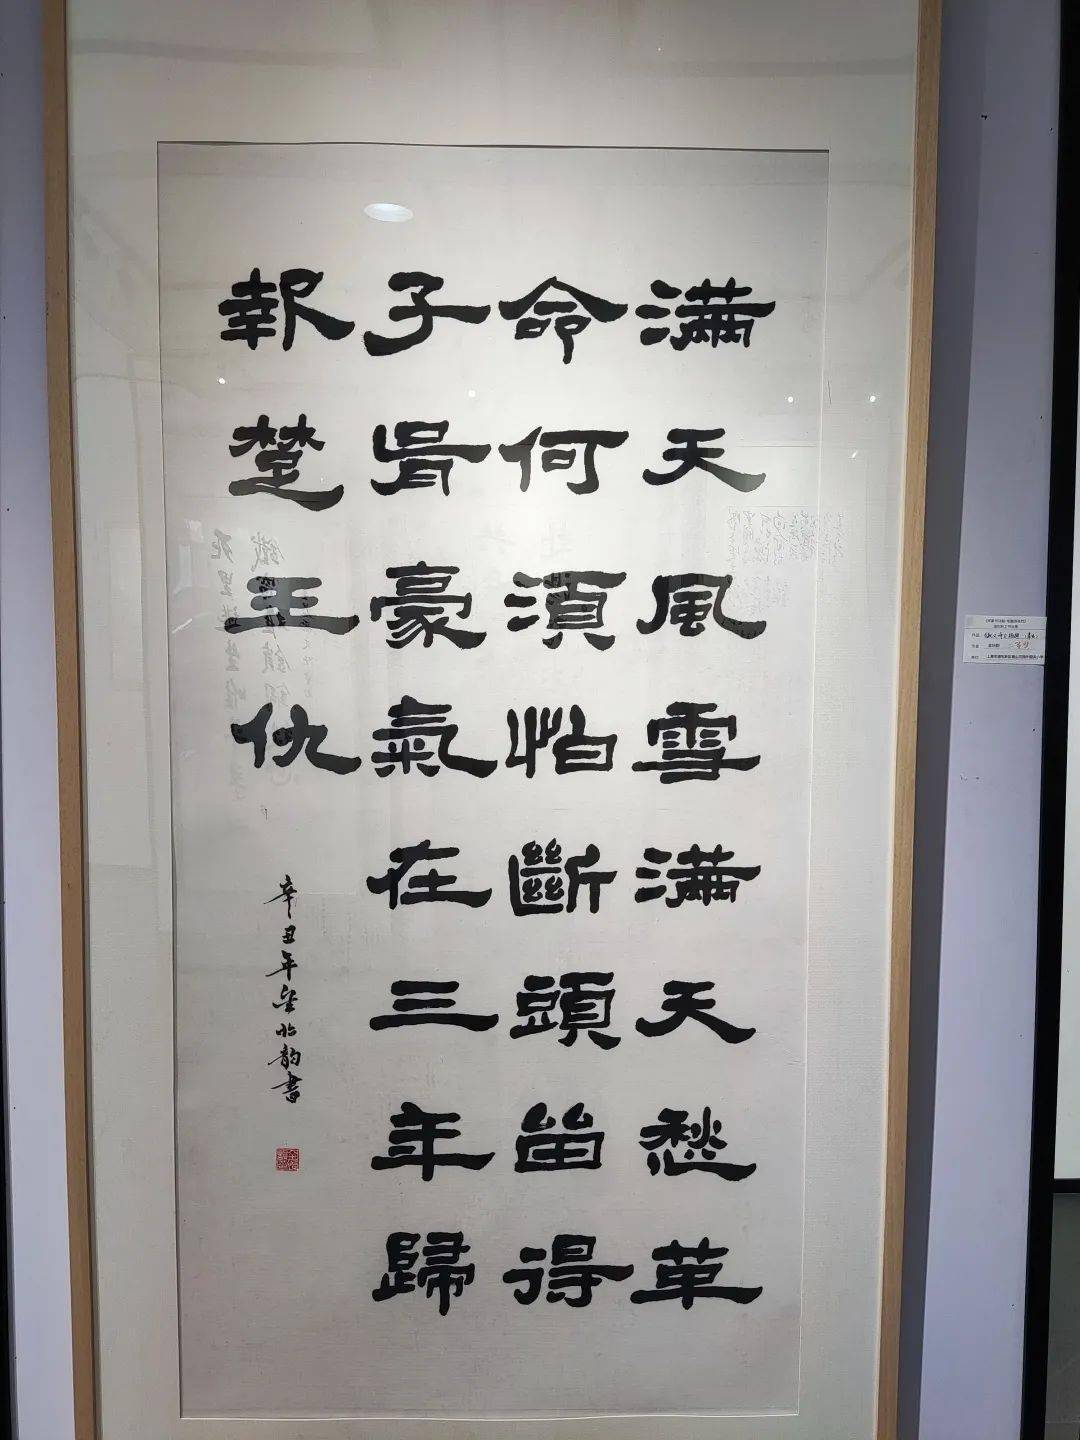 滿天風雪滿天愁革
命何湏怕斷頭留得
子胥豪氣在三年歸
報楚王仇
辛丑年金韵書